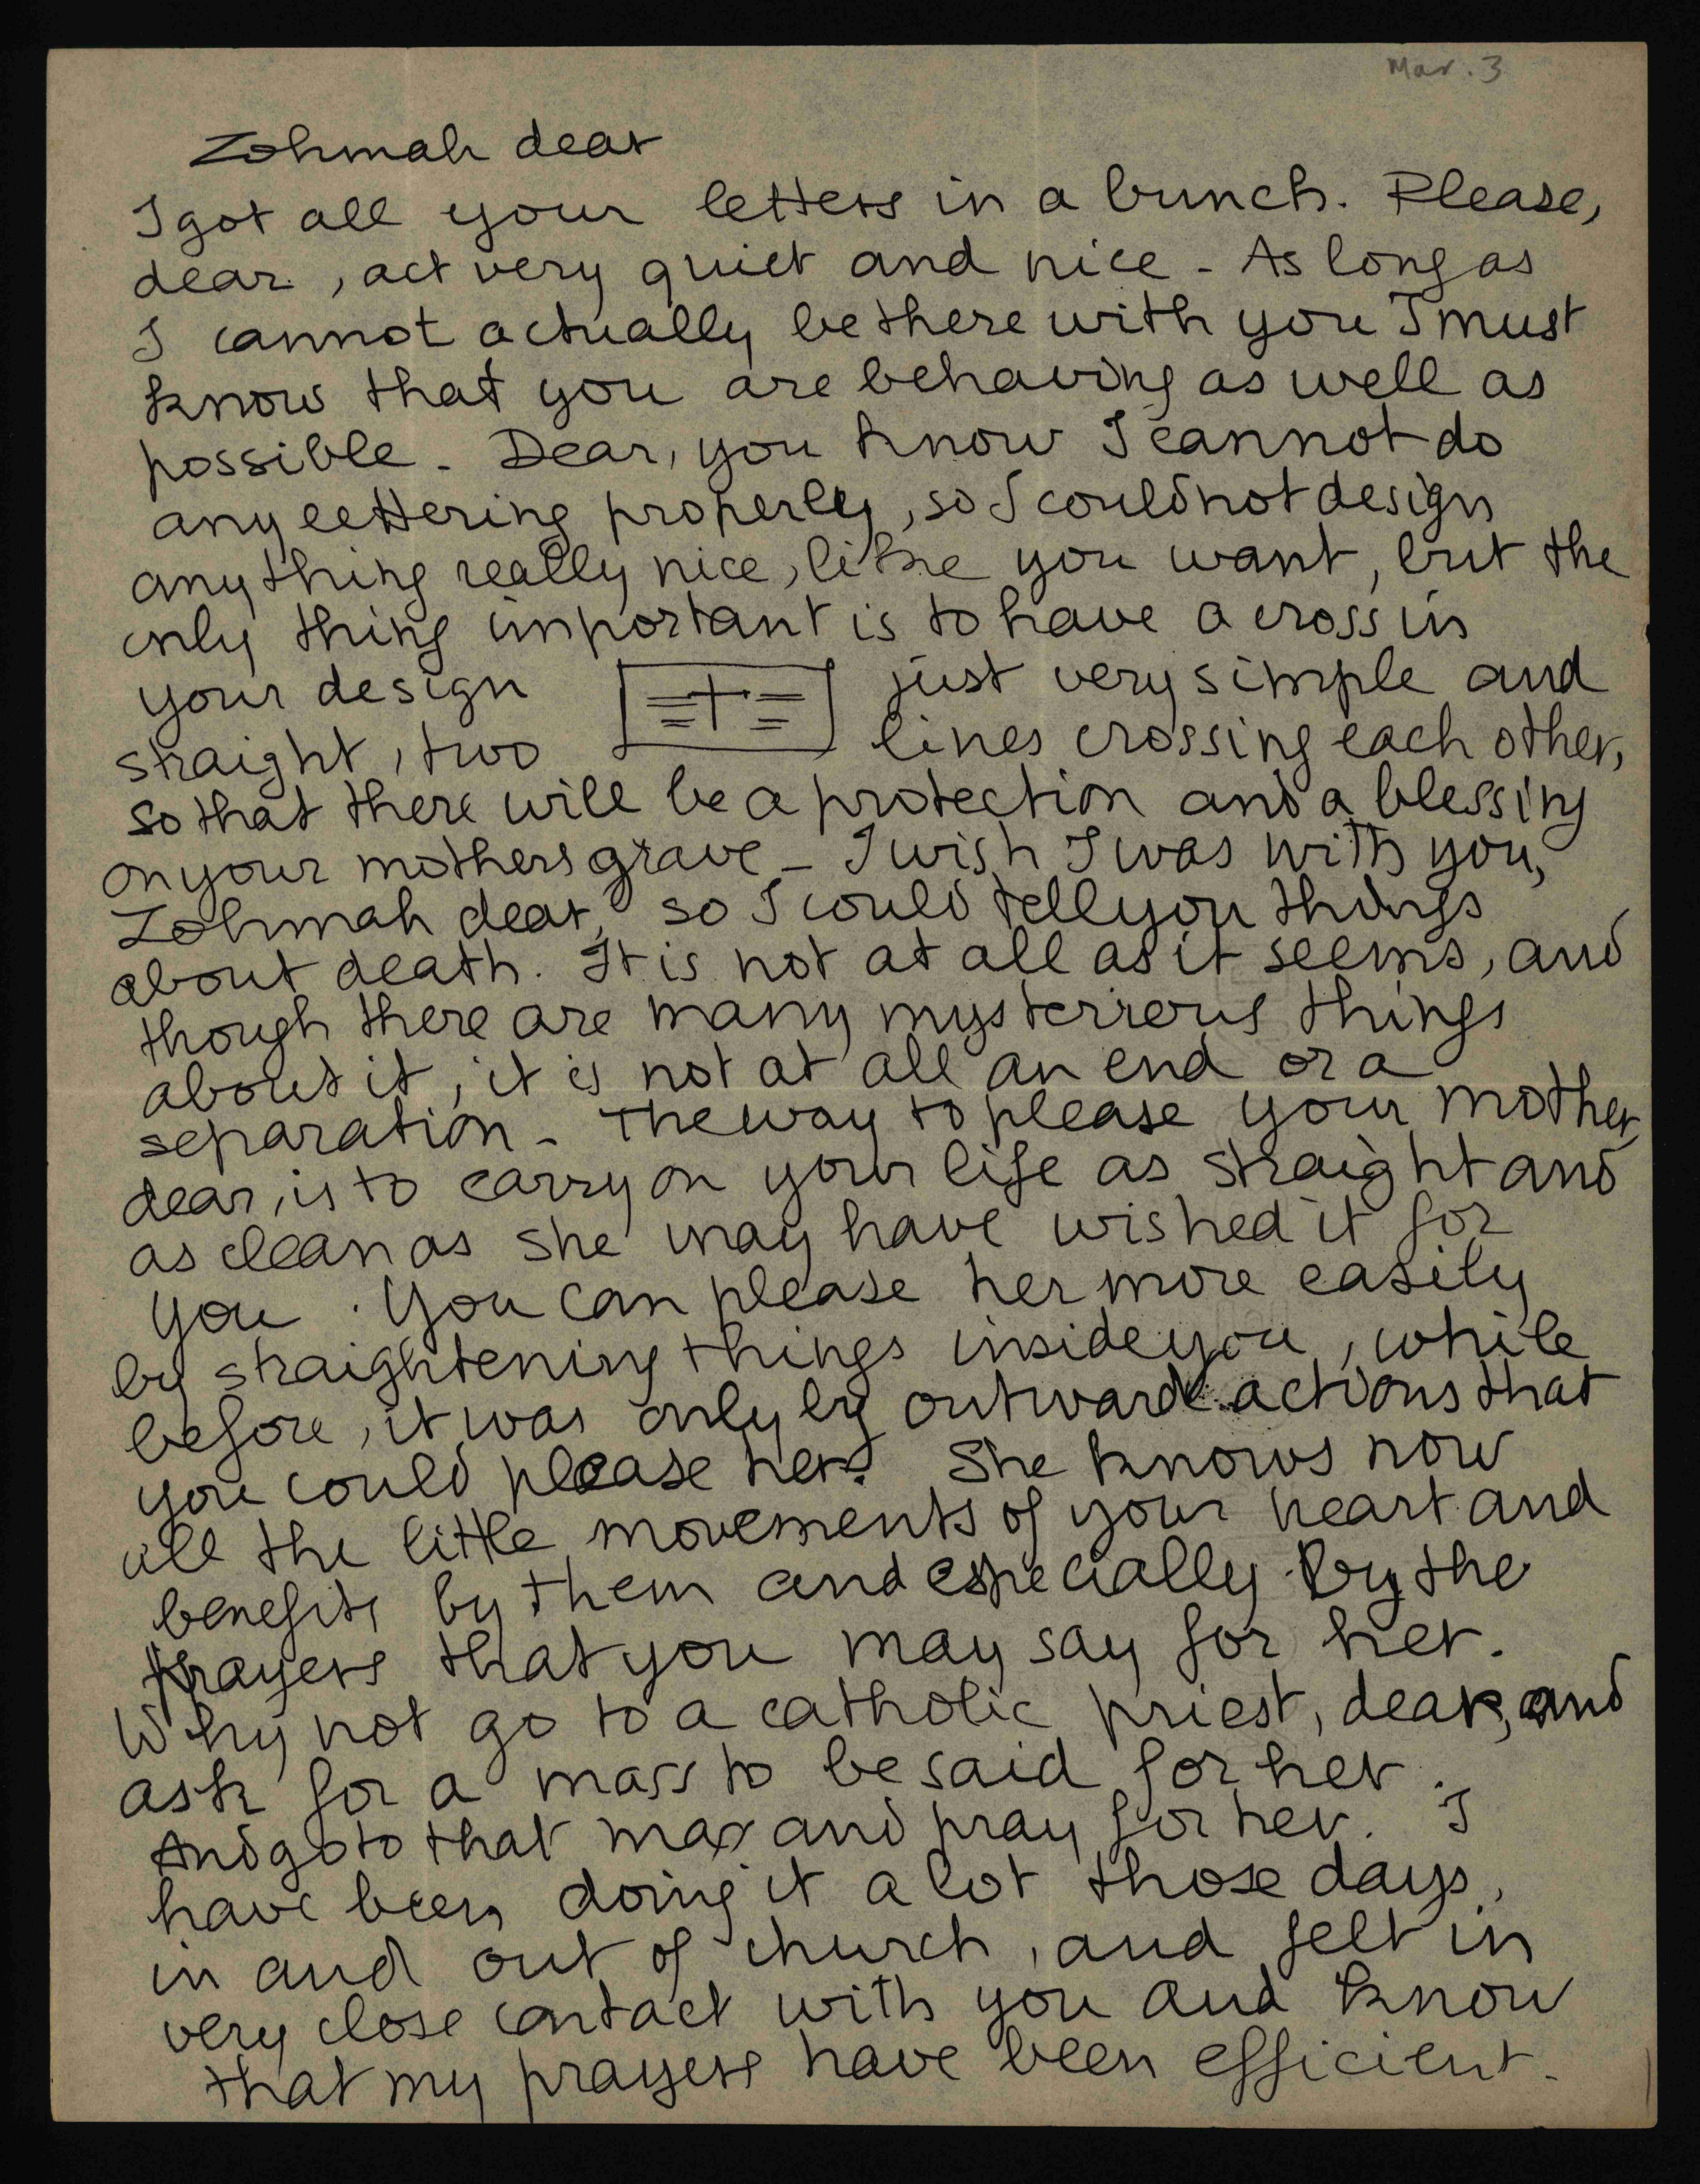 Mar. 3
Zohmah dear
I got all your letters in a bunch. Please,
dear, act very quiet and nice - As long as
I cannot actually be there with you I must
know that you are behaving as well as
possible - Dear, you know I cannot do
any lettering properly, so I could not design
anything really nice, like you want, but the
only thing important is to have a cross in
your design just very simple and
straight, two lines crossing each other,
so that there will be a protection and a blessing
on your mothers grave - I wish I was with you,
Zohmah dear, so I could tell you things
about death. It is not at all as it seems, and
though there are many mysterious things
about it, it is not at all an end or a
separation - The way to please your mother,
dear, is to carry on your life as straight and
as clean as she may have wished it for
you. You can please her more easily
by straightening things inside you, while
before, it was only by outward actions that
you could please her. She knows now
all the little movements of your heart and
benefits by them and especially by the
prayers that you may say for her.
Why not go to a catholic priest, dear, and
ask for a mass to be said for her.
And go to that mass and pray for her. I
have been doing it a lot those days,
in and out of church, and felt in
very close contact with you and know
that my prayers have been efficient.